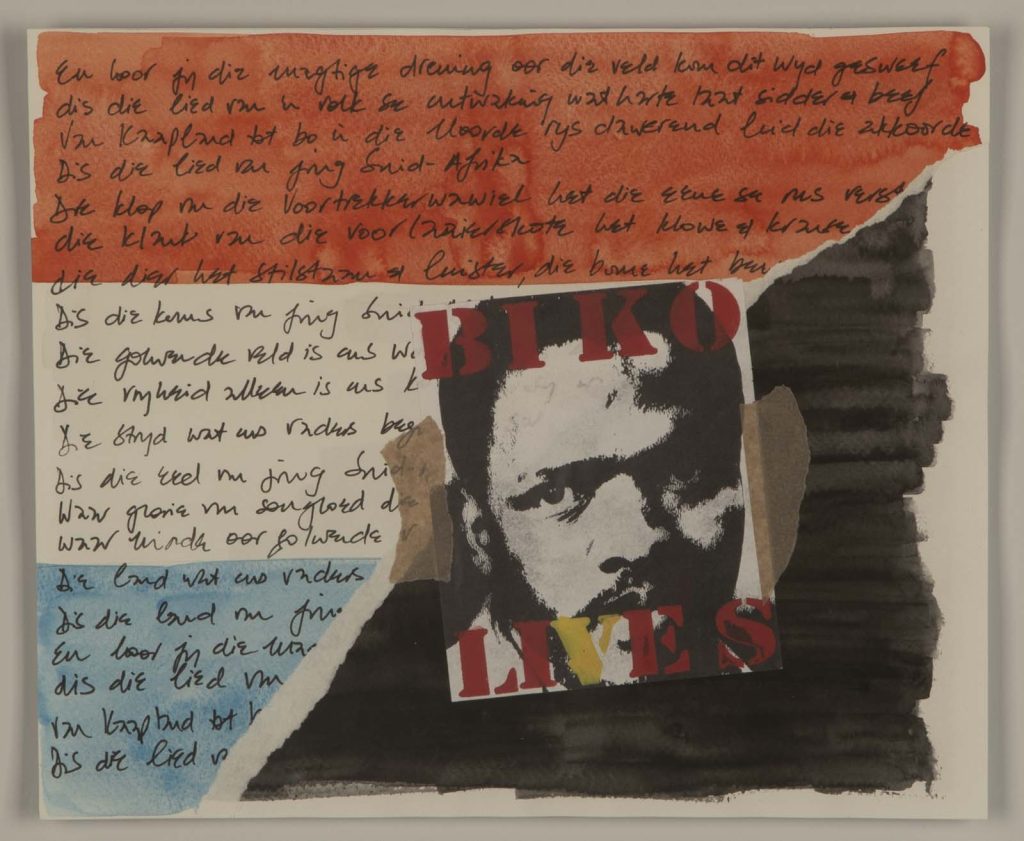 En hoor jy die magtige dreuning oor die veld kom dit wyd gesweef
dis die lied van 'n volk se ontwaking wat harte laat sidder en beef
Van Kaapland tot bo in die Noorde rys dawerend luid die akkoorde
Dis die lied van jong Suid-Afrika
Die klop van die Voortrekkerwawiel het die eeue se rus vers
die klank van die voorlaaierskote het klowe en kranse
die dier het stilstaan en luister, die bome het be
Dis die koms van jong Suid
Die golwende veld is ons w
Die vryheid alleen is ons k
Die stryd wat ons vaders beg
Dis die eed van jong Suid-
Waar glorie van songloed d
waar winde oor golwende
Die land wat ons vaders
Dis die land van jong
En hoor jy die ma
dis die lied van
van Kaapland tot b
Dis die lied v
BIKO
LIVES